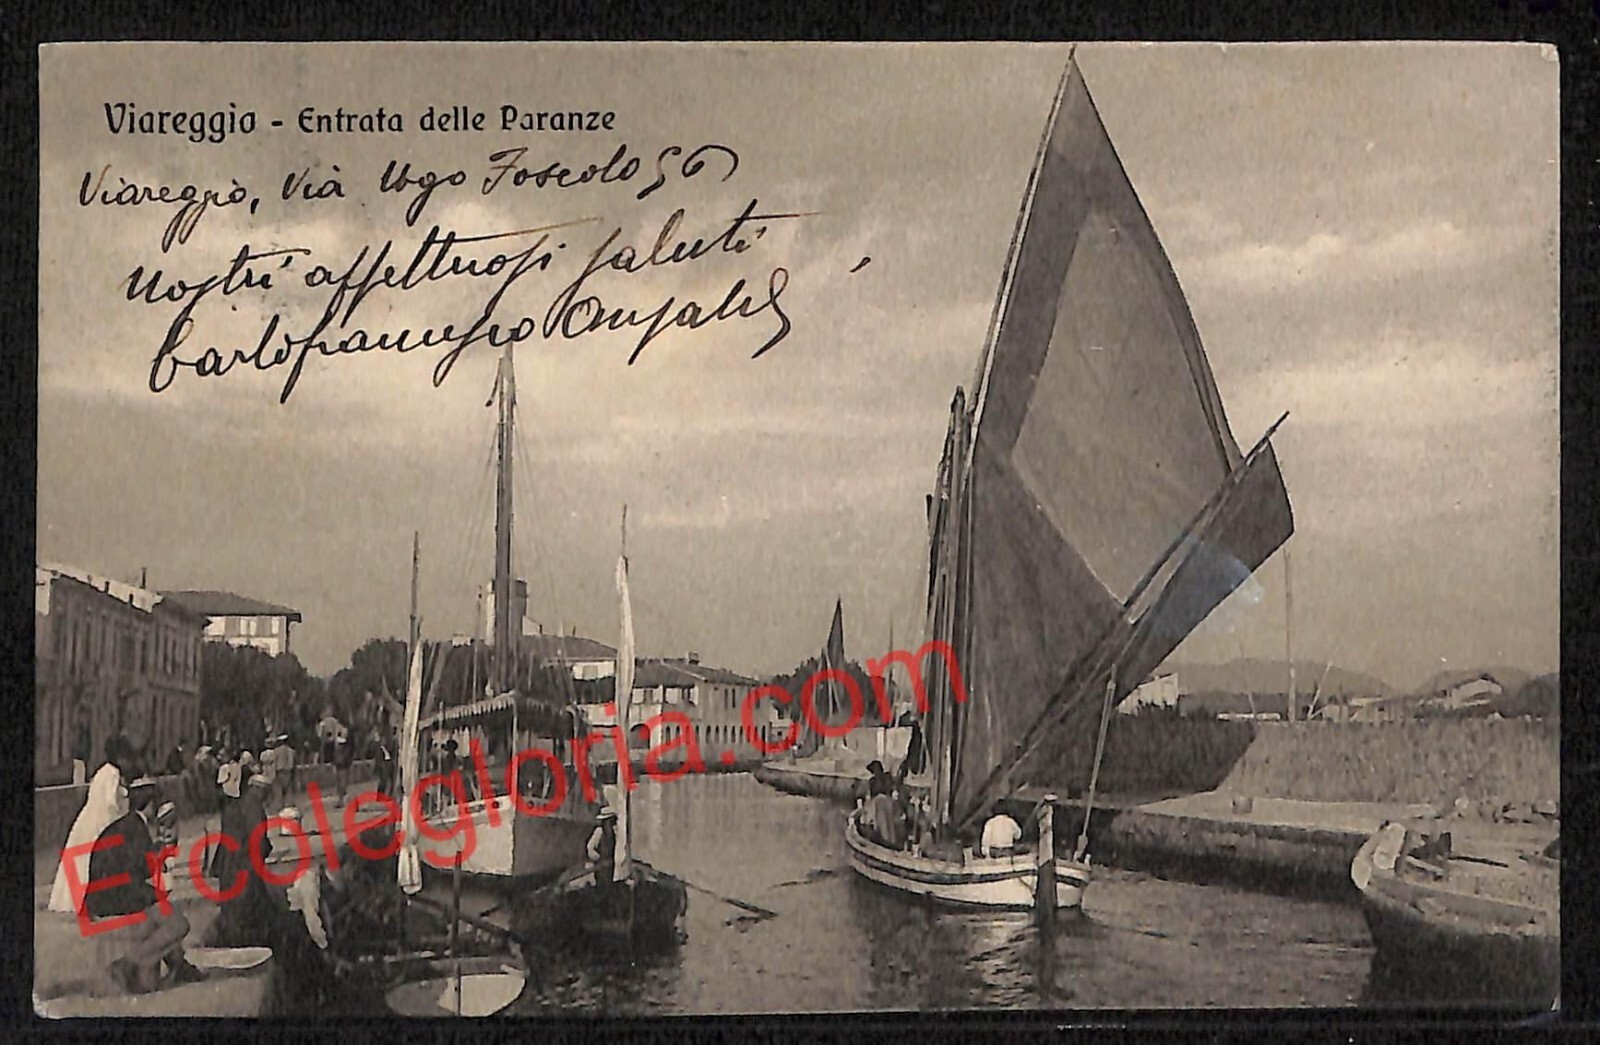 Viareggio - Entrata delle Paranze
Viareggio, Via Ugo Foscolo 56
Nostri affettuosi saluti
Ercolegloria.com